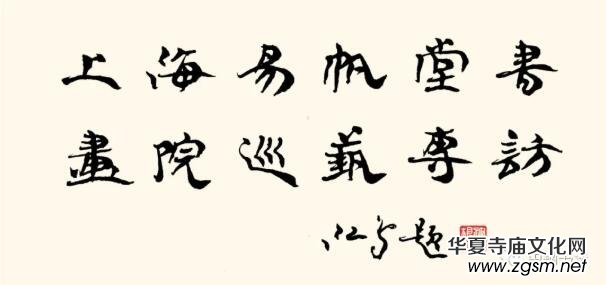 上海易帆堂書
畫院巡藝專訪
题
华夏寺庙文化网
www.zgsm.net